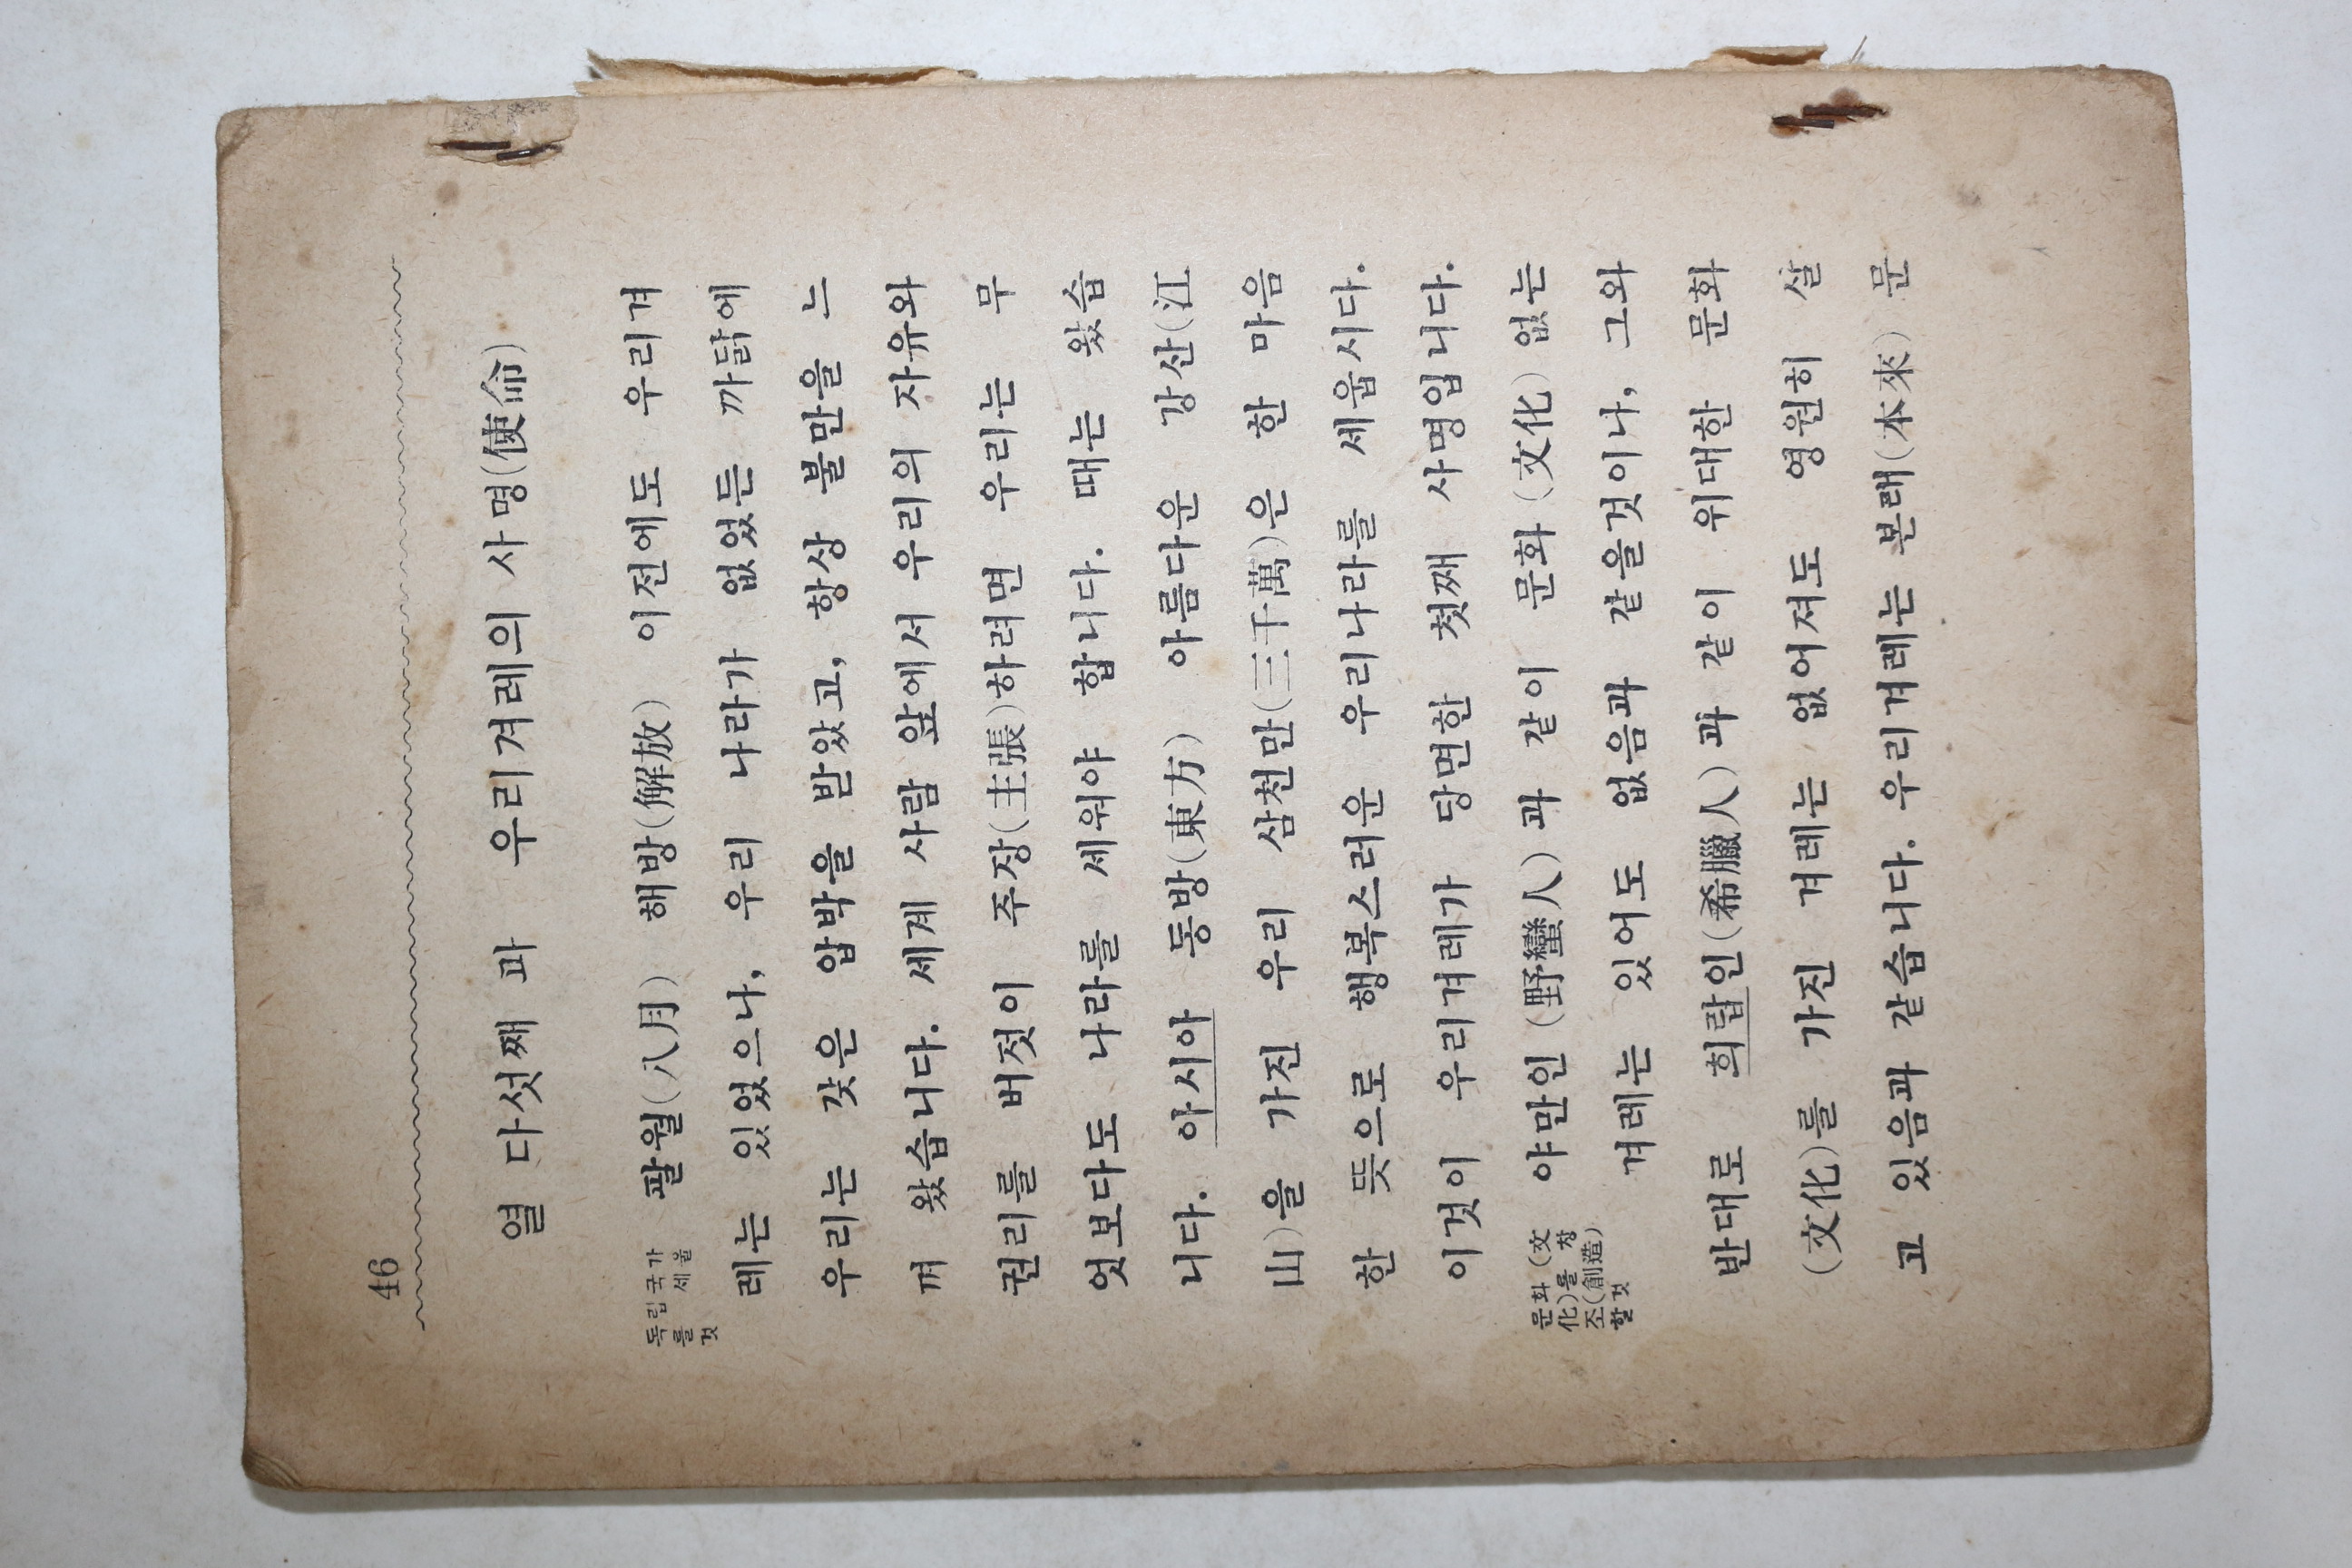 46
열 다섯째 과 우리겨레의 사명(使命)
독립국가
를 세울
것
팔월(八月) 해방(解放) 이전에도 우리겨
레는 있었으나, 우리 나라가 없었든 까닭에
우리는 갖은 압박을 받았고, 항상 불만을 느
껴 왔습니다. 세계 사람 앞에서 우리의 자유와
권리를 버젓이 주장(主張)하려면 우리는 무
엇보다도 나라를 세워야 합니다. 때는 왔습
니다. 아시아 동방(東方) 아름다운 강산(江
山)을 가진 우리 삼천만(三千萬)은 한 마음
한 뜻으로 행복스러운 우리나라를 세웁시다.
이것이 우리겨레가 당면한 첫째 사명입니다.
문화 (文
化)를 창
조(創造)
할것
야만인 (野蠻人) 과 같이 문화 (文化) 없는
겨레는 있어도 없음과 같을것이나, 그와
반대로 희랍인(希臘人) 과 같이 위대한 문화
(文化)를 가진 겨레는 없어져도 영원히 살
고 있음과 같습니다. 우리겨레는 본래(本來) 문